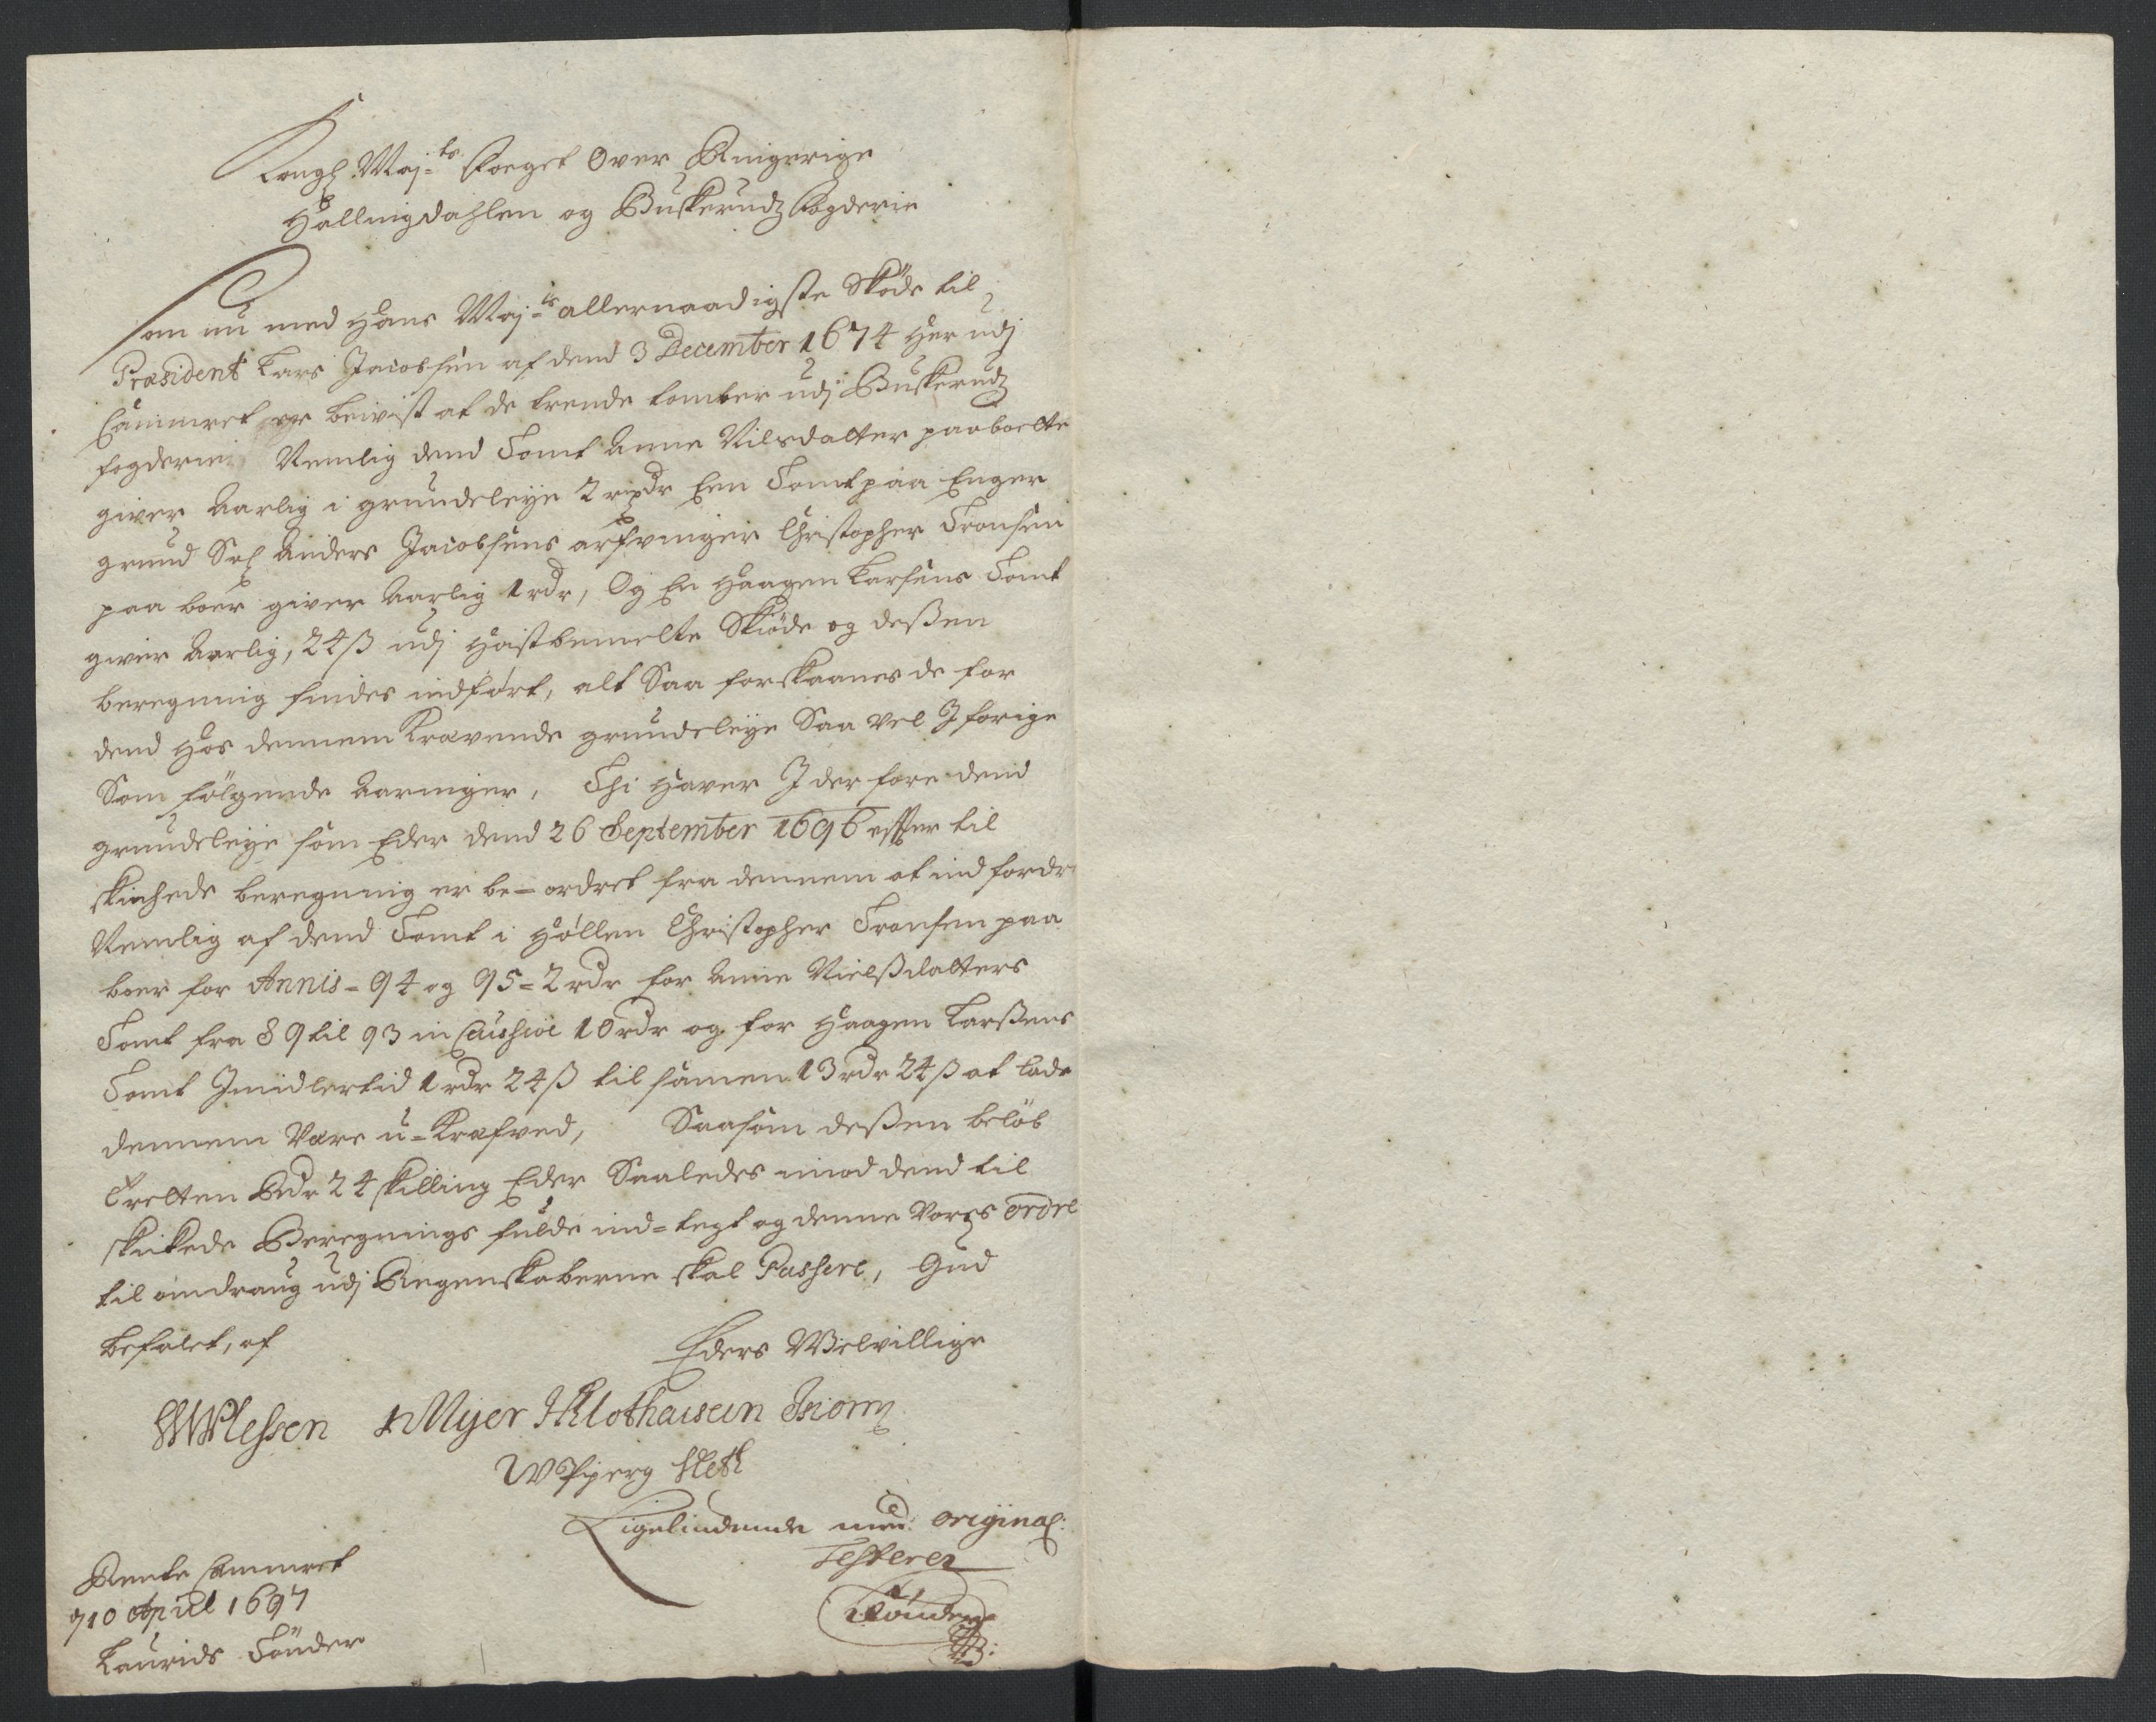 Kongl Maj-ts Foeget Over Ringerige
Hallingdahlen og Buskerudz fogderie
Som nu med Hans Maj-ts allernaadigste Skiøde til
Præsident Lars Jacobsen af dend 3 December 1674 Her udj
Cammeret er beivist at de trende tomter udj Buskerudz
fogderie Nemlig dend Tomt Anne Nilsdatter paaboelte
giver Aarlig i grundeleye 2 rixdr Een Tomt paa Enger
grund Sal Anders Jacobsens arfvinger Christopher Tronsen
paa boer giver Aarlig 1 rdr, Og En Haagen Larsens Tomt
giver Aarlig, 24 ß udj Høistbemelte Skiøde og deßen
beregning findes indført, alt Saa forskaanes de for
dend Hos dennem Krævende grundeleye Saa vel J forige
Som følgende Aaringer, Thi Haver J der fore dend
grundeleye som Eder dend 26 September 1696 effter til
skichede beregning er be-ordret fra dennem at indfordre
Nemlig af dend Tomt i Høllen Christopher Tronsen paa
boer for Annis - 94 og 95 - 2 rdr for Anne Nielßdatters
Tomt fra 89 til 93 inCausive 10 rdr og for Haagen Larßens
Tomt Jmidlertid 1 rdr 24 ß til sammen 13 rdr 24 ß at lade
dennem Være u-Krafved, Saasom deßen beløb
Tretten Rdr 24 skilling Eder Saaledes imod dend til
skickede Beregnings fulde ind-tegt og denne Vores ordre
til omdraug udj Regenskaberne skal Passere, Gud
befalet, af
Eders Welvillige
Plessen Mejer Klothausein Thiorn
Lige lindende med original:
Testerer
Rente Cammeret
10 April 1697
Laurids Tönder